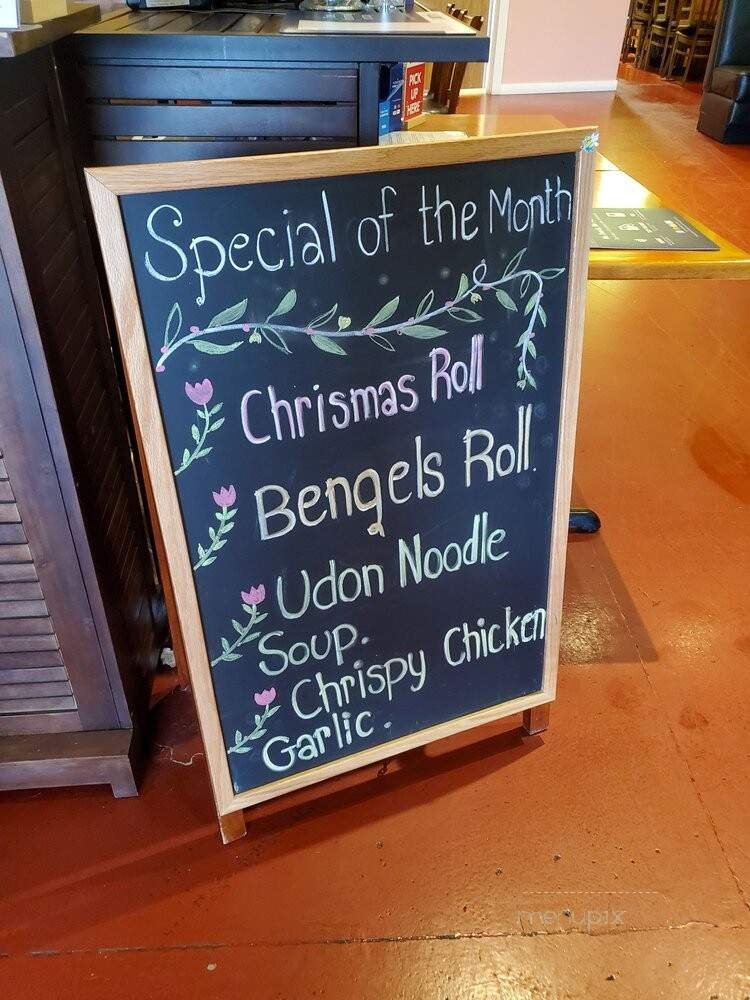 PICK
UP
HERE
Special of the Month
Chrismas Roll
Bengels Roll.
Udon Noodle
Soup.
Chrispy Chicken
Garlic.
menupix